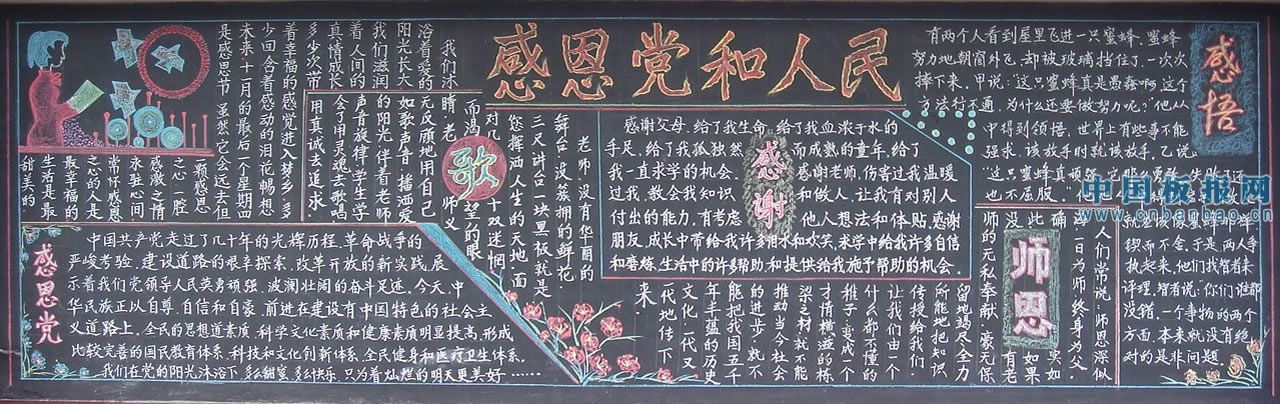 感恩党和人民
我们沐
浴着爱的
阳光长大
我们滋润
着人间的
真情成长
多少次带
着幸福的感觉进入梦乡,多
少回含着感动的泪花畅想
未来十一月的最后一个星期四
是感恩节虽然它会远去但
一颗感恩
之心一腔
感激之情
永驻心间
常怀感恩
之心的人是
最幸福的
生活是最
甜美的。
歌
老师,没有华丽的
舞台,没簇拥的鲜花
三尺讲台一块黑板就是
您挥洒人生的天地,面
睛,老师义
无反顾地用自己
如歌声音,播洒爱
的阳光伴着老师
声音旋律,学生学
会了用灵魂去歌唱
用真诚去追求。
感谢
感谢父母,给了我生命,给了我血浓于水的
手足,给了我孤独然而成熟的童年,给了
我一直求学的机会。感谢老师,伤害过我温暖
过我,教会我知识和做人,让我有对别人
付出的能力,有考虑他人想法和体贴,感谢
朋友,成长中带给我许多泪水和欢笑,求学中给我许多自信
和磨炼,生活中的许多帮助,和提供给我施予帮助的机会。
感悟
有两个人看到屋里飞进一只蜜蜂,蜜蜂
努力地朝窗外飞,却被玻璃挡住了,一次次
摔下来。甲说:“这只蜜蜂真是愚蠢啊,这个
方法行不通,为什么还要做努力呢?”他从
中得到领悟,世界上有些事不能
强求,该放手时就该放手。乙说:
“这只蜜蜂真顽强
也不屈服。”
锲而不舍,于是,两人争
执起来,他们找智者来
评理,智者说:“你们谁都
没错,一个事物的两个
方面,本来就没有绝
对的是非问题。
师恩
人们常说,师恩深似
一日为师,终身为父。
此
确实如
没有老
师的无私奉献,毫无保
留地竭尽全力
所能地把知识
传授给我们
让我们由一个
什么都不懂的
稚子,变成一个
才情横溢的栋
梁之材,就不能
推动当今社会
的进步,就不
能把我国五千
年丰蕴的历史
文化一代又
一代地传下
来。
感恩党
中国共产党走过了几十年的光辉历程,革命战争的
严峻考验,建设道路的艰辛探索,改革开放的新实践,展
示着我们党领导人民英勇顽强,波澜壮阔的奋斗足迹。今天,中
华民族正以自尊、自信和自豪,前进在建设有中国特色的社会主
义道路上。全民的思想道素质,科学文化素质和健康素质明显提高,形成
比较完善的国民教育体系,科技和文化创新体系,全民健身和医疗卫生体系。
我们在党的阳光沐浴下,多么甜蜜,多么快乐,只为着灿烂的明天更美好……
中国板报网
www.cnbanbao.cn